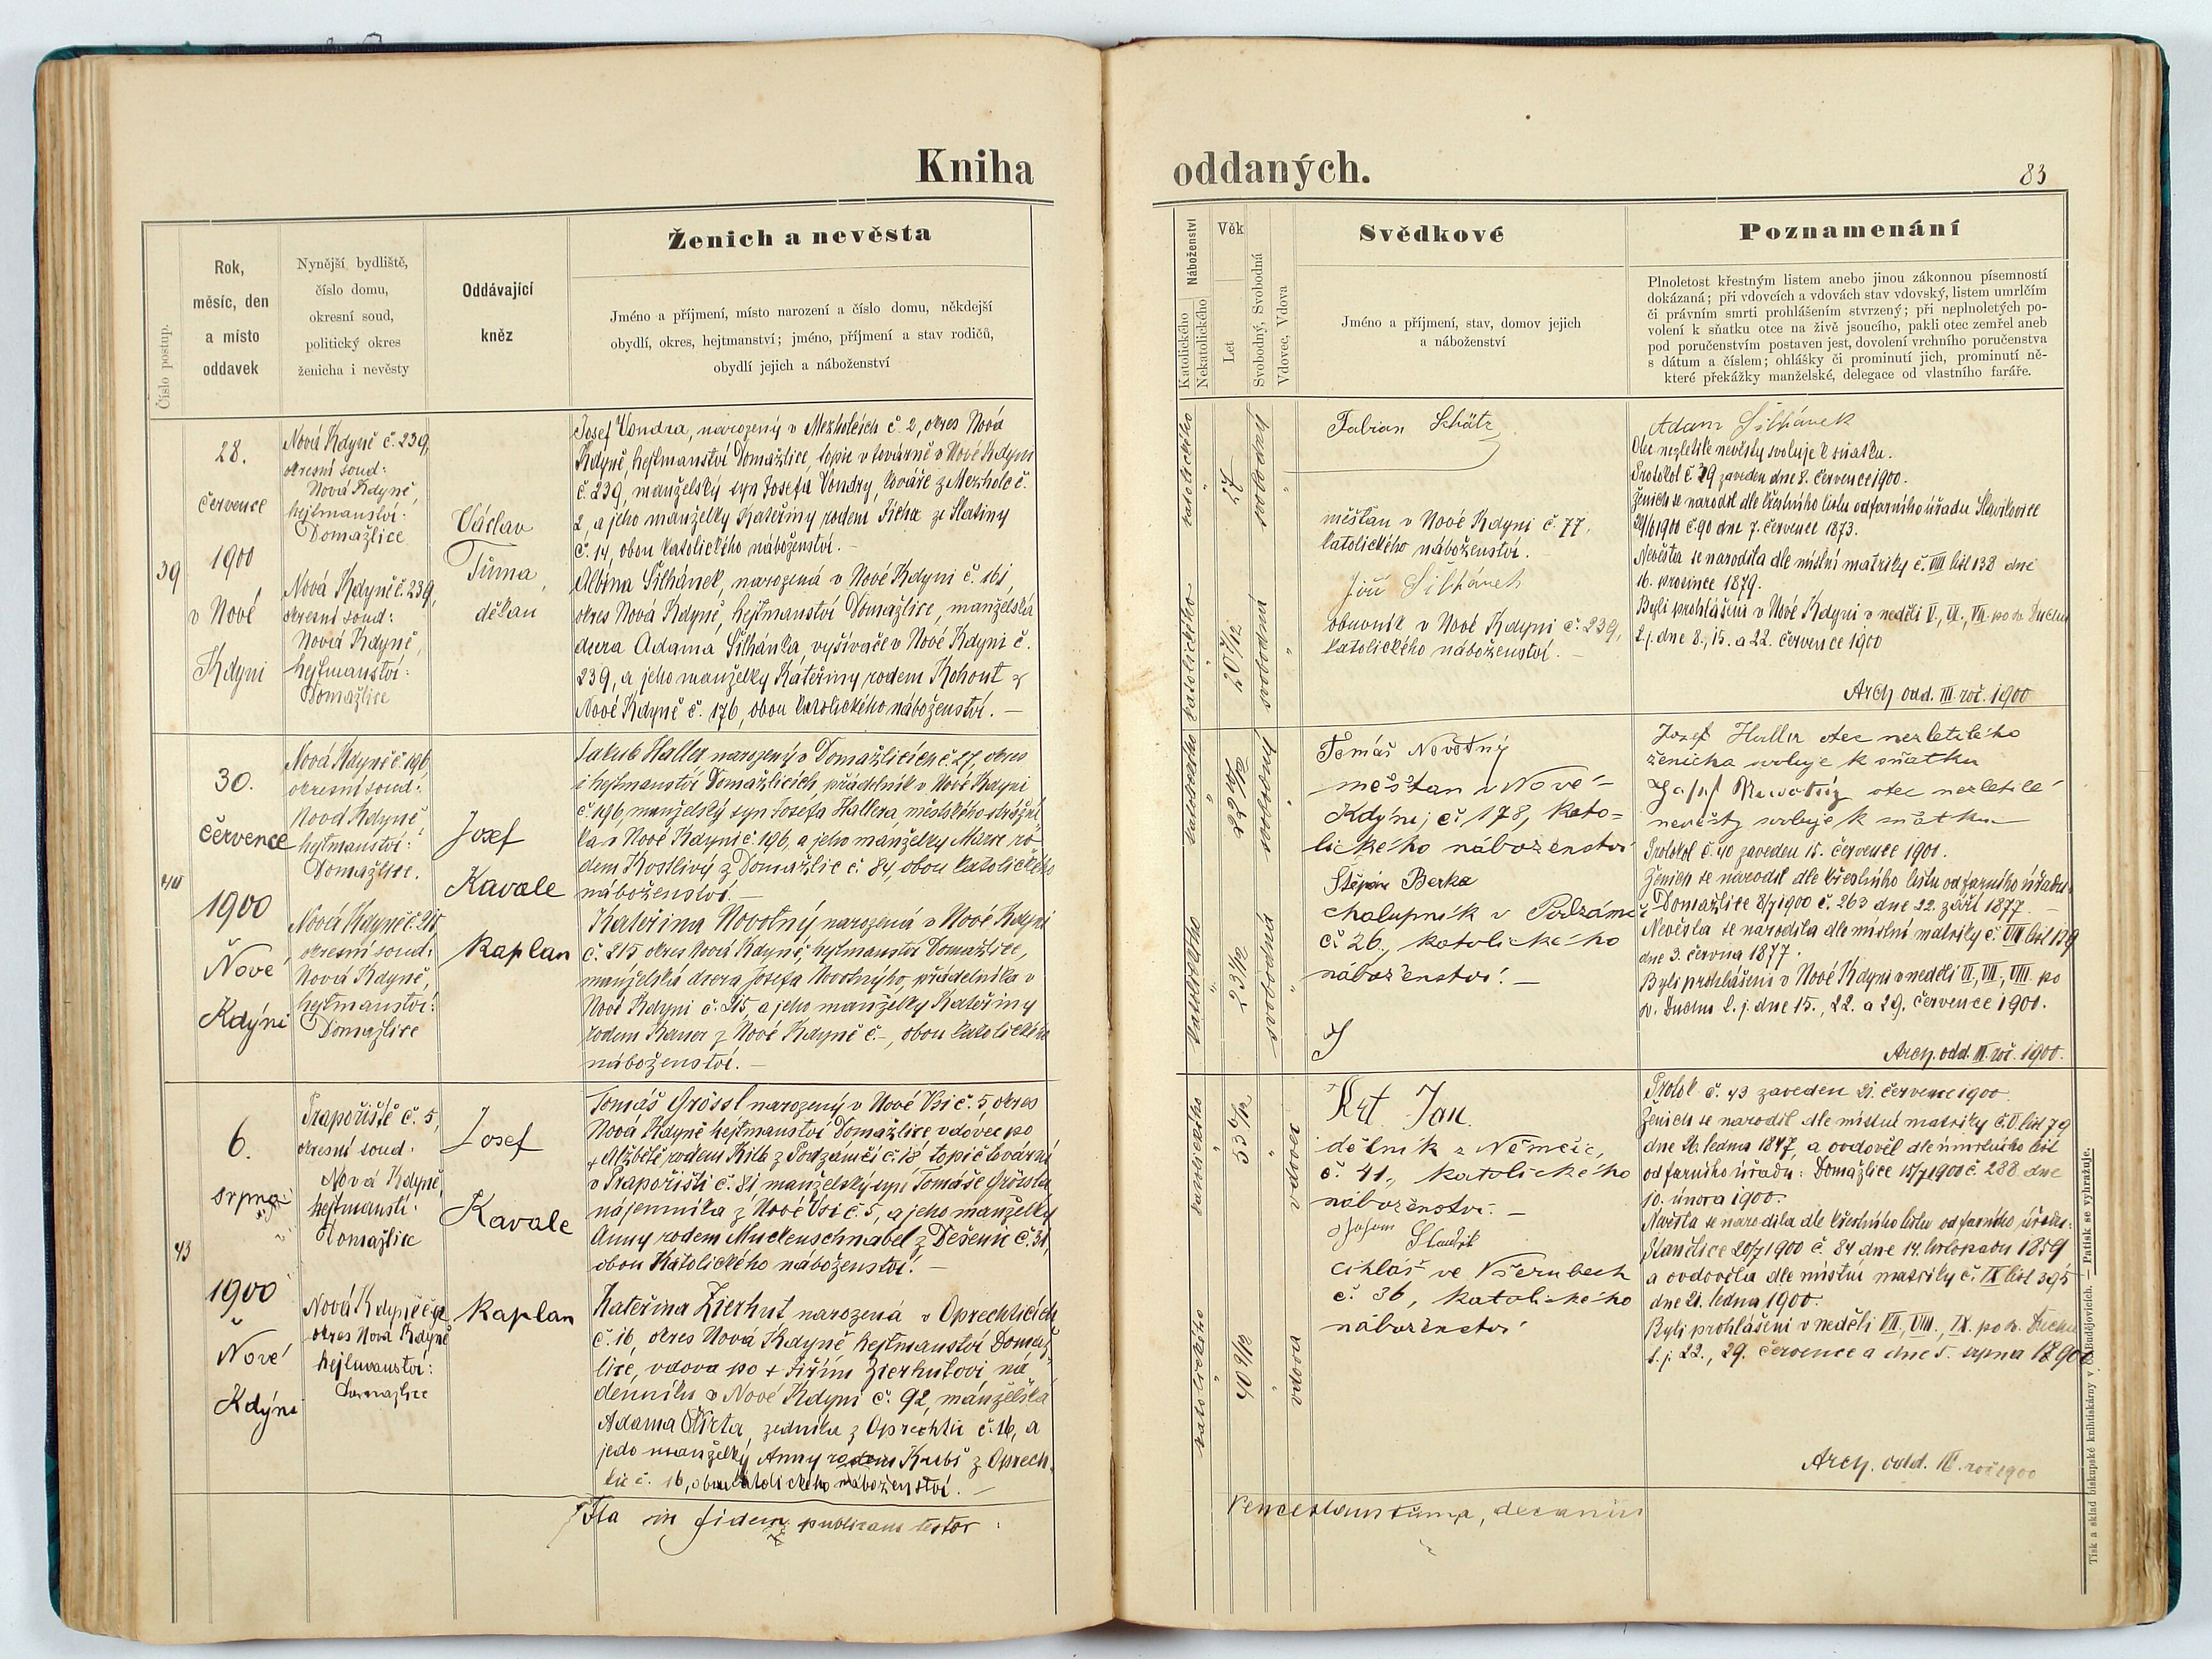 Kniha
oddaných.
83
Číslo postup.
Rok,
měsíc, den
a místo
oddavek
Nynější bydliště,
číslo domu,
okresní soud,
politický okres
ženicha i nevěsty
Oddávající
kněz
Ženich a nevěsta
Jméno a příjmení, místo narození a číslo domu, někdejší
obydlí, okres, hejtmanství; jméno, příjmení a stav rodičů,
obydlí jejich a náboženství
Náboženství
Katolického
Nekatolického
Věk
Let
Svobodný, Svobodná
Vdovec, Vdova
Svědkové
Jméno a příjmení, stav, domov jejich
a náboženství
Poznamenání
Plnoletost křestným listem anebo jinou zákonnou písemností
dokázaná; při vdovcích a vdovách stav vdovský, listem umrlčím
či právním smrti prohlášením stvrzený; při neplnoletých po-
volení k sňatku otce na živě jsoucího, pakli otec zemřel aneb
pod poručenstvím postaven jest, dovolení vrchního poručenstva
s dátum a číslem; ohlášky či prominutí jich, prominutí ně-
které překážky manželské, delegace od vlastního faráře.
39
28.
července
1900
v Nové
Kdyni
Nová Kdyně č. 239,
okresní soud:
Nová Kdyně,
hejtmanství:
Domažlice
Nová Kdyně č. 239,
okresní soud:
Nová Kdyně,
hejtmanství:
Domažlice
Václav
Tůma,
děkan
Josef Vondra, narozený v Mezholcích č. 2, okres Nová
Kdyně, hejtmanství Domažlice, topič v továrně v Nové Kdyni
č. 239, manželský syn Josefa Vondry, kováře z Mezholc č.
2, a jeho manželky Kateřiny rodem Ticha ze Slatiny
č. 14, obou katolického náboženství. —
Albína Šilhánek, narozená v Nové Kdyni č. 161,
okres Nová Kdyně, hejtmanství Domažlice, manželská
dcera Adama Šilhánka, vyšívače v Nové Kdyni č.
239, a jeho manželky Kateřiny rodem Kohout z
Nové Kdyně č. 176, obou katolického náboženství. —
katolického
27
svobodný
katolického
20 7/12
svobodná
Fabian Schätz
měšťan v Nové Kdyni č. 77,
katolického náboženství.
Jiří Šilhánek
obuvník v Nové Kdyni č. 239,
katolického náboženství. —
Adam Šilhánek
Otec nezletilé nevěsty svoluje k sňatku.
Protokol č. 39 zaveden dne 8. července 1900.
Ženich se narodil dle křestního listu od farního úřadu Slavíkovice
29/6 1900 č. 90 dne 7. července 1873.
Nevěsta se narodila dle místní matriky č. VIII list 138 dne
16. prosince 1879.
Byli prohlášeni v Nové Kdyni v neděli V., VI., VII. po sv. Duchu
t. j. dne 8., 15. a 22. července 1900
Arch. odd. III. roč. 1900
40
30.
července
1900
v Nové
Kdýni
Nová Kdyně č. 196,
okresní soud:
Nová Kdyně
hejtmanství:
Domažlice.
Nová Kdyně č. 215
okresní soud:
Nová Kdyně,
hejtmanství:
Domažlice
Josef
Kavale
kaplan
Jakub Haller, narozený v Domažlicích č. 27, okres
i hejtmanství Domažlicích, přádelník v Nové Kdyni
č. 196, manželský syn Josefa Hallera, městského strážní-
ka v Nové Kdyni č. 196, a jeho manželky Marie ro-
dem Kostlivý z Domažlic č. 84, obou katolického
náboženství. —
Kateřina Novotný, narozená v Nové Kdyni
č. 215 okres Nová Kdyně, hejtmanství Domažlice,
manželská dcera Josefa Novotnýho, přádelníka v
Nové Kdyni č. 215, a jeho manželky Kateřiny
rodem Kaner z Nové Kdyně č. –, obou katolického
náboženství. —
katolického
22 10/12
svobodný
katolického
23 1/12
svobodná
Tomáš Novotný
měšťan v Nové
Kdýni č 178, kato-
lického náboženství
Štěpán Berka
chalupník v Podzámčí
č. 26., katolického
náboženství. —
Josef Haller otec nezletilého
ženicha svoluje k sňatku
Josef Nowotný otec nezletilé
nevěsty svoluje k sňatku
Protokol č. 40 zaveden 15. července 1900.
Ženich se narodil dle křestního listu od farního úřadu:
Domažlice 8/7 1900 č. 263 dne 22. září 1877. —
Nevěsta se narodila dle místní matriky č. VIII list 139
dne 3. června 1877.
Byli prohlášeni v Nové Kdyni v neděli VI., VII., VIII. po
sv. Duchu t. j. dne 15., 22. a 29. července 1900.
Arch. odd. III. roč. 1900.
43
6.
srpna
1900
v Nové
Kdýni
Prapořiště č. 5,
okresní soud:
Nová Kdyně,
hejtmanství:
Domažlice
Nová Kdyně č. 92
okres Nová Kdyně
hejtmanství:
Domažlice
Josef
Kavale
kaplan
Tomáš Grössl narozený v Nové Vsi č. 5, okres
Nová Kdyně hejtmanství Domažlice vdovec po
+ Alžbětě rodem Kilb z Podzámčí č. 18 topič tovární
v Prapořišti č. 81 manželský syn Tomáše Grössla
nájemníka z Nové Vsi č. 5, a jeho manželky
Anny rodem Muckenschnabel z Dešenic č. 31,
obou katolického náboženství. —
Kateřina Zierhut narozená v Oprechticích
č. 16, okres Nová Kdyně hejtmanství Domaž-
lice, vdova po + Jiřím Zierhutovi, ná-
denníku v Nové Kdyni č. 92, manželská
Adama Wirta, zedníka z Oprechtic č. 16, a
jeho manželky Anny rodem Kubš z Oprech-
tic č. 16, obou katolického náboženství. —
katolického
53 6/12
vdovec
katolického
40 9/12
vdova
Krt Jan
dělník z Němčic,
č. 41., katolického
náboženství. —
cihlář ve Všerubech
č. 36, katolického
náboženství
Protok. č. 43 zaveden 21. července 1900.
Ženich se narodil dle místní matriky č. V list 79
dne 26. ledna 1847, a ovdověl dle úmrtního listu
od farního úřadu: Domažlice 15/7 1900 č. 288 dne
10. února 1900.
Nevěsta se narodila dle křestního listu od farního úřadu:
Stančice 20/7 1900 č. 84 dne 14. listopadu 1859
a ovdověla dle místní matriky č. IX list 395
dne 21. ledna 1900.
Byli prohlášeni v neděli VII., VIII., IX. po sv. Duchu
t. j. 22., 29. července a dne 5. srpna 1900
Arch. odd. IV. roč 1900
Ita in fidem publicam testor:
Venceslaus Tůma, decanus
Tisk a sklad biskupské knihtiskárny v Č. Budějovicích. — Patisk se vyhražuje.